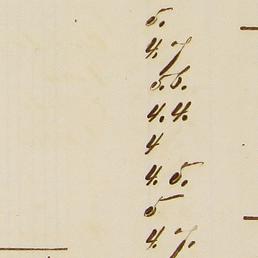 5.
4.7
5.6.
4.4.
4
4.5.
5
4.7.